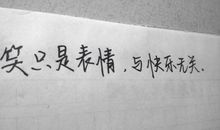 笑只是表情，与快乐无关.